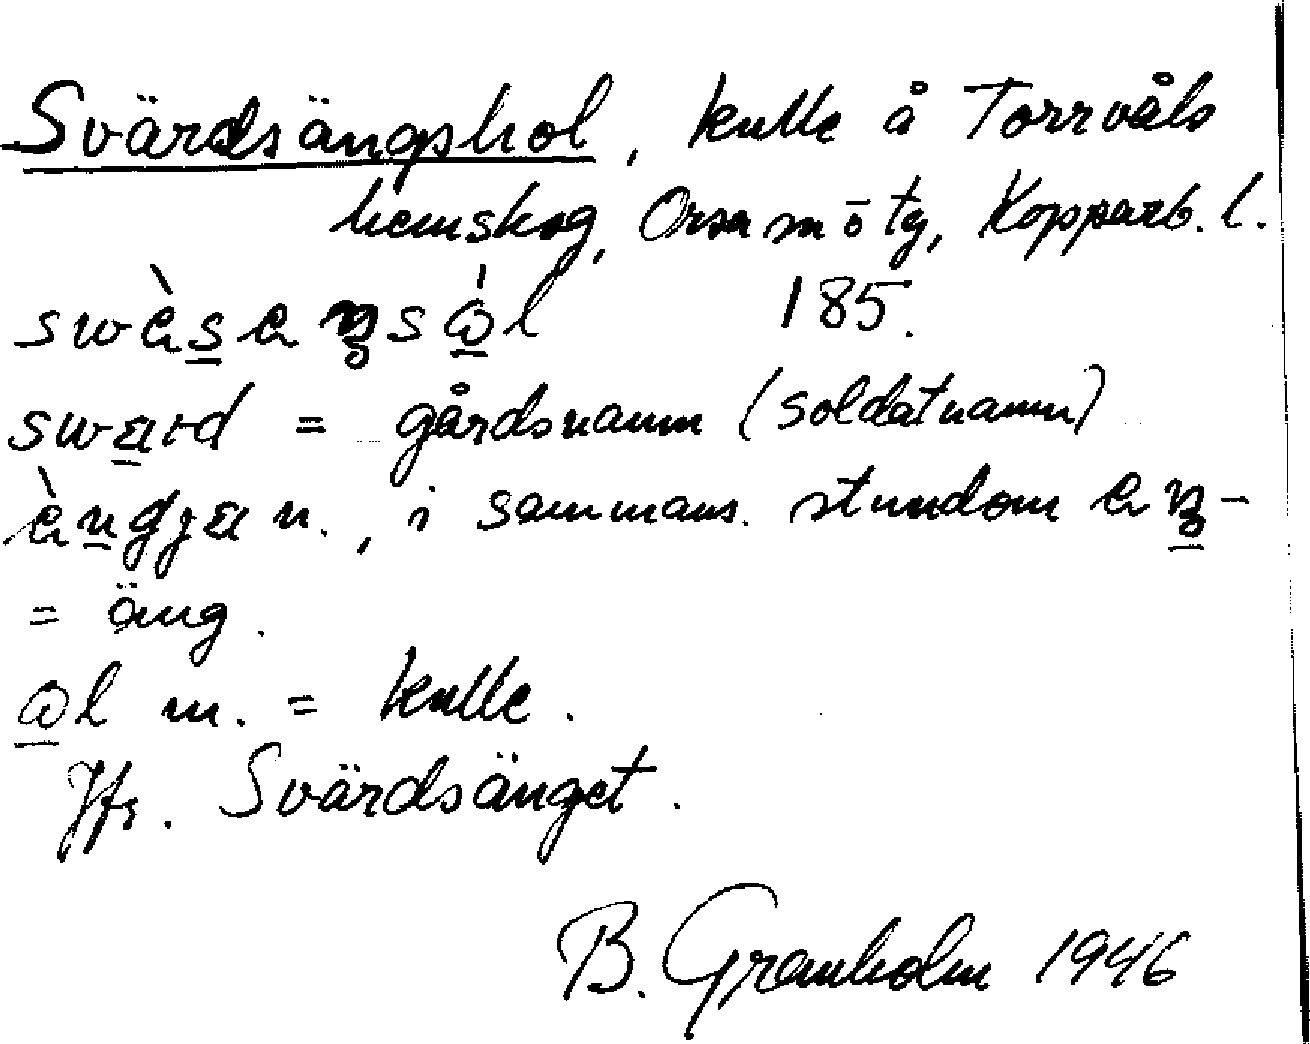 Svärdsängshol, kulle å Torrvåls
hemskog, Orsa sn ö tg, Kopparb. l.
185.
= gårdsnamn (soldatnamn)
n., i sammans. stundom
= äng.
ωl m. = kulle.
Jfr. Svärdsänget.
B. Granholm 1946